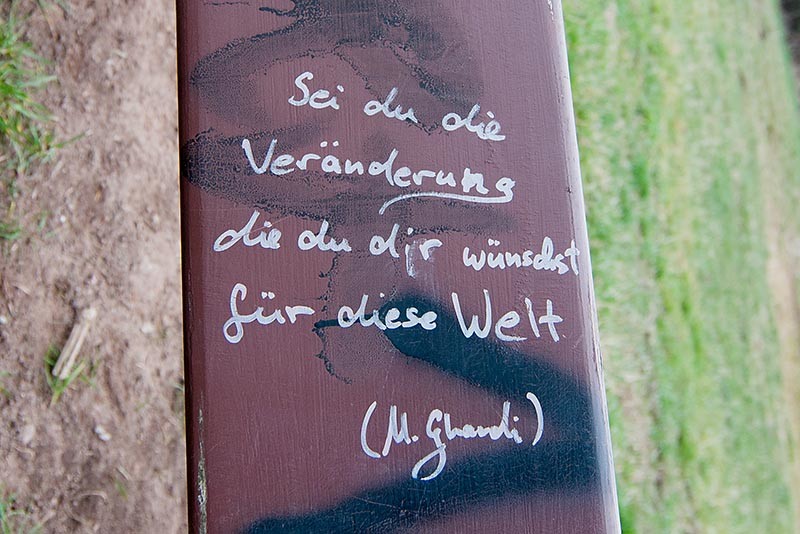 Sei du die
Veränderung
die du dir wünschst
für diese Welt
(M. Ghandi)